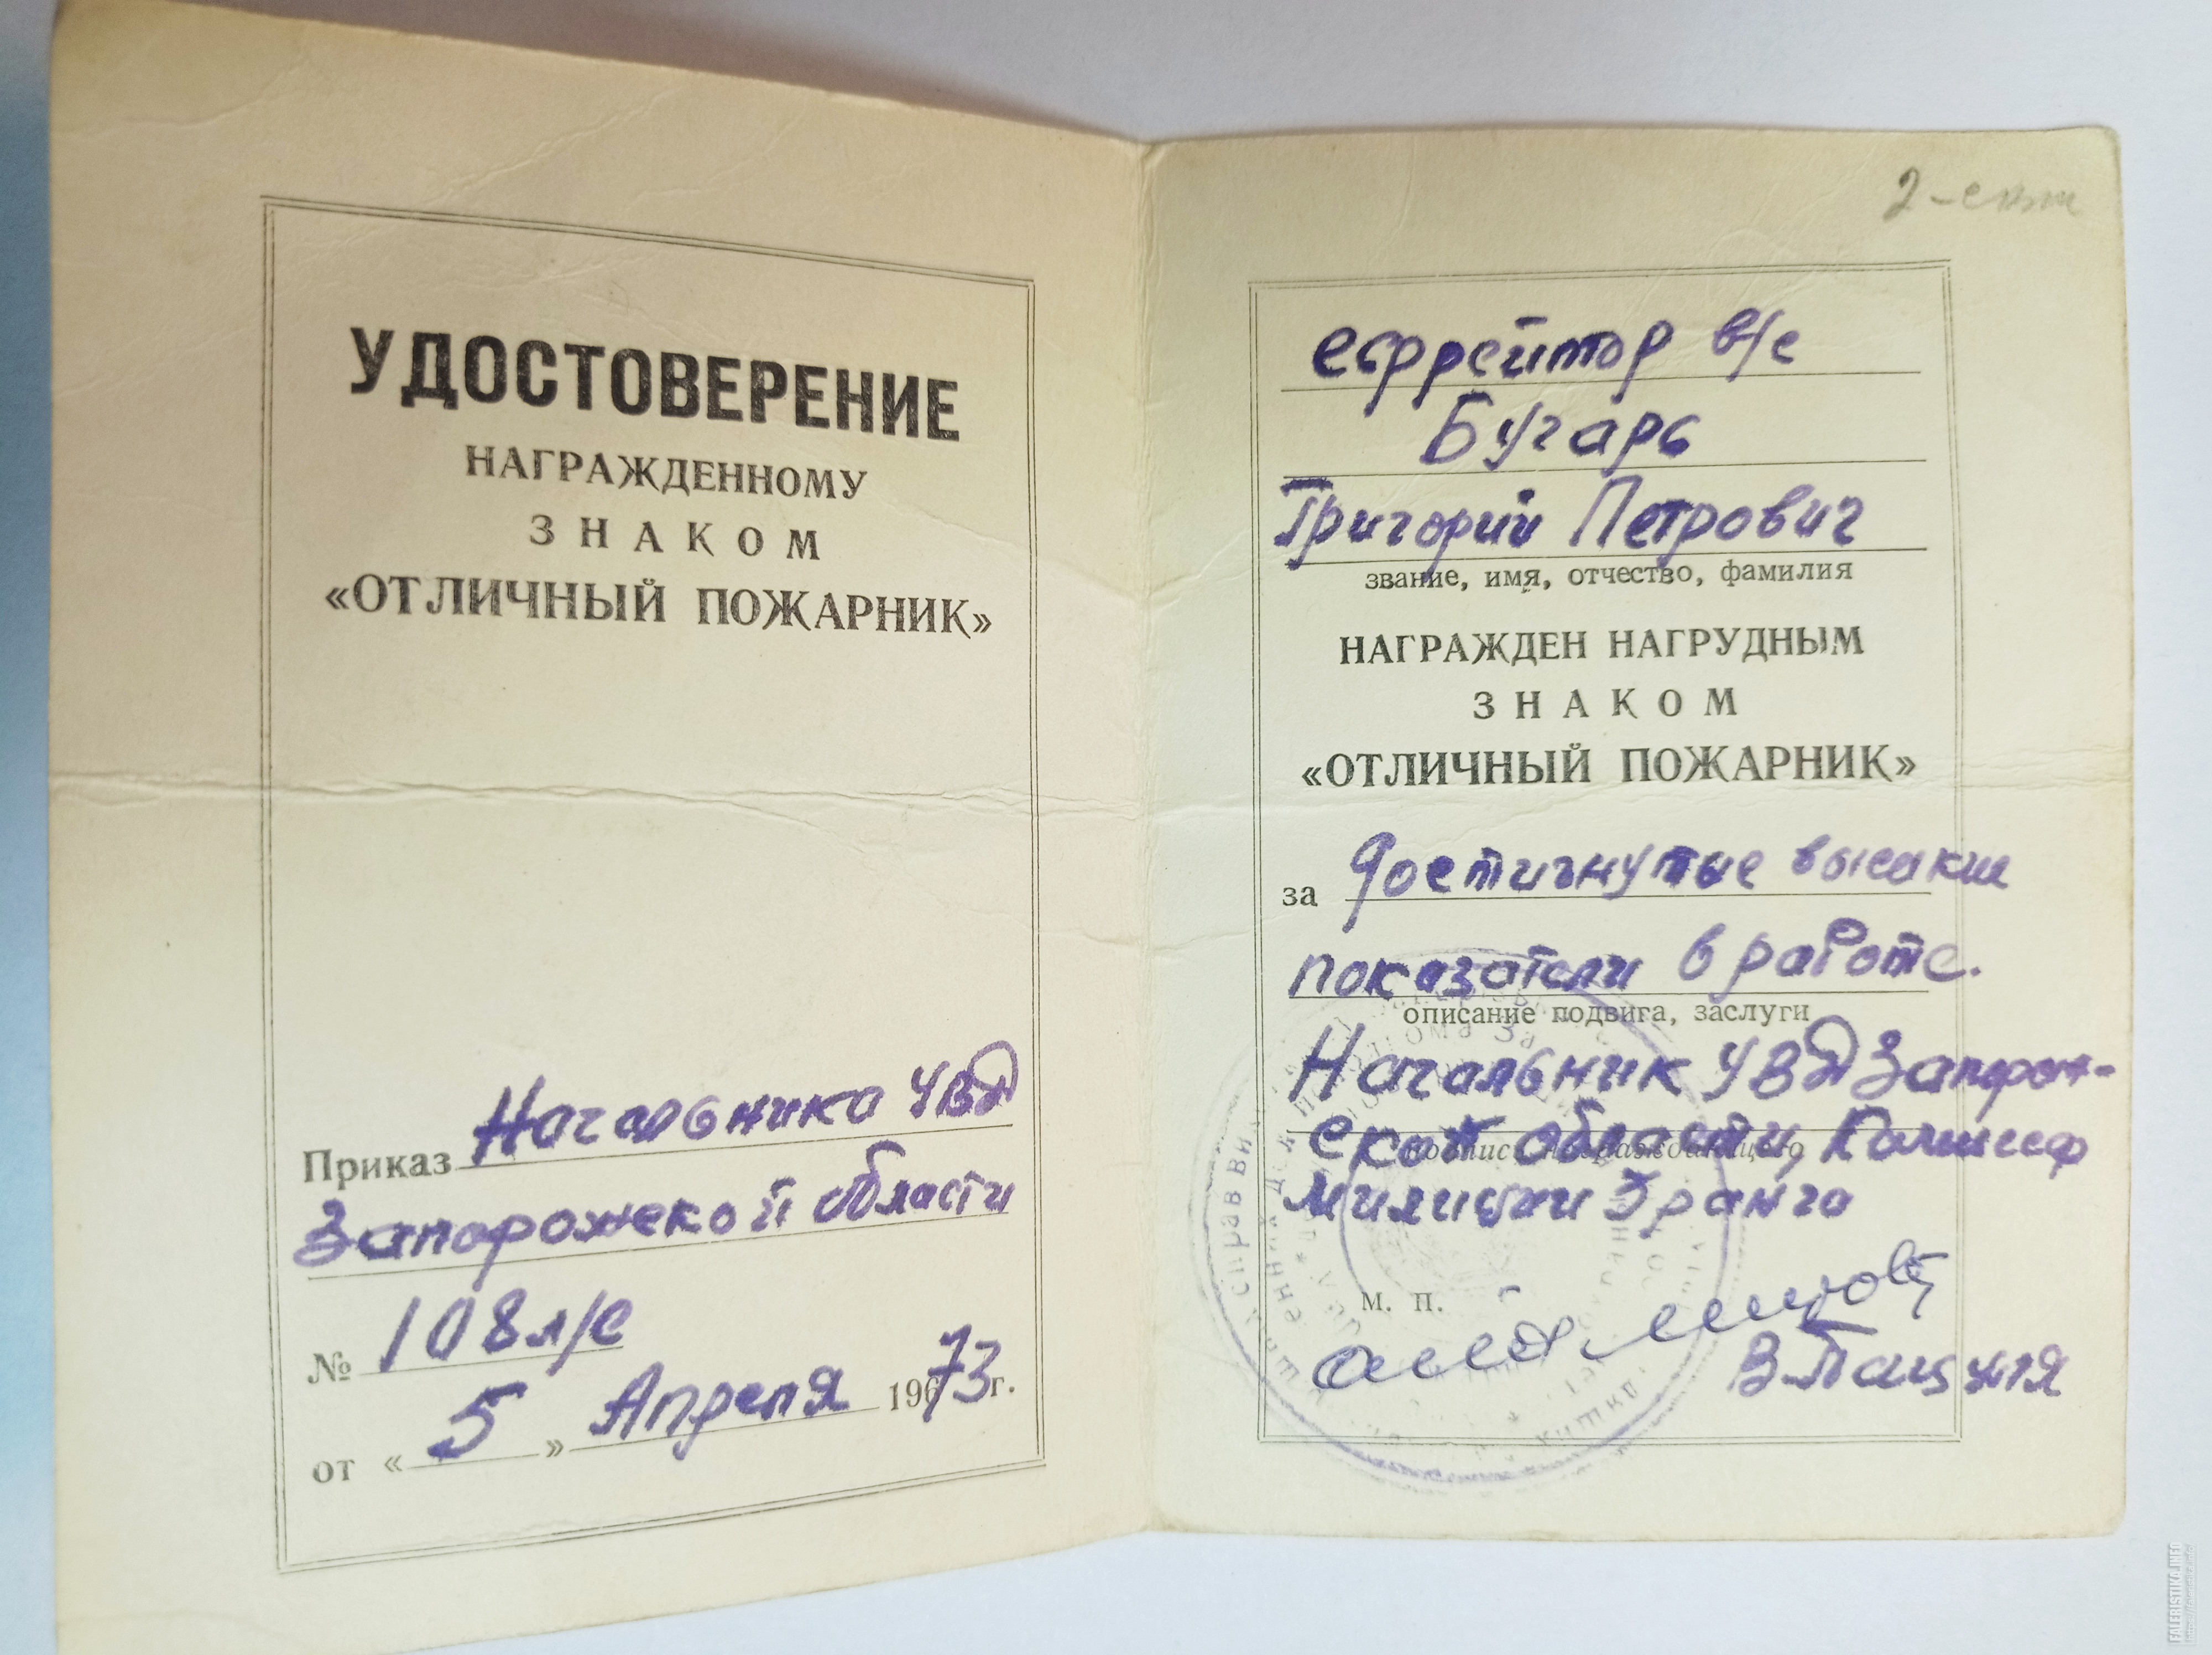 УДОСТОВЕРЕНИЕ
НАГРАЖДЕННОМУ
ЗНАКОМ
«ОТЛИЧНЫЙ ПОЖАРНИК»
Приказ Начальника УВД
Запорожской области
№ 108 л/с
от « 5 » Апреля 19673 г.
2-
ефрейтор в/с
Бугарь
Григорий Петрович
звание, имя, отчество, фамилия
НАГРАЖДЕН НАГРУДНЫМ
ЗНАКОМ
«ОТЛИЧНЫЙ ПОЖАРНИК»
за достигнутые высокие
показатели в работе.
описание подвига, заслуги
Начальник УВД Запорож-
ской области, Комиссар
подпись награждающего
милиции 3 ранга
М. П.
В. Пацуля
FALERISTIKA.INFO